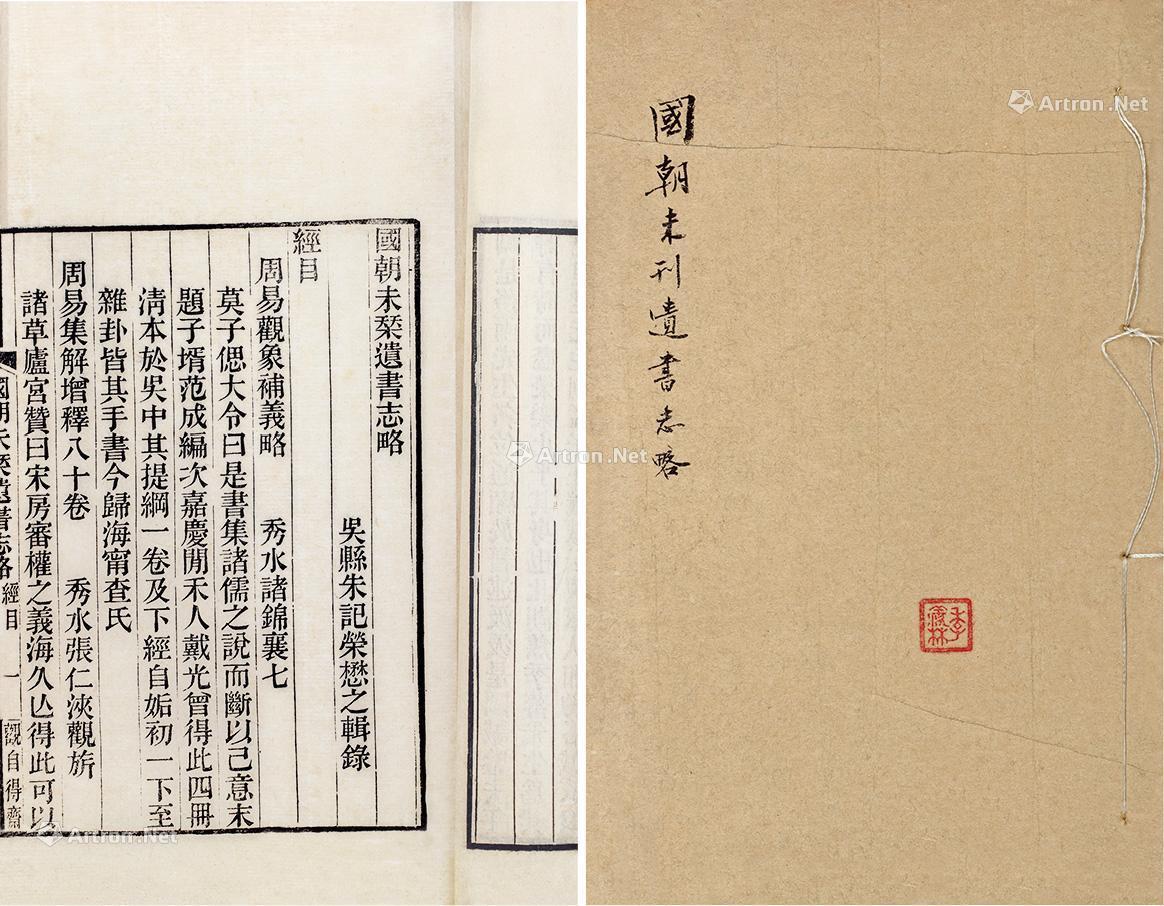 國朝未栞遺書志略
吳縣朱記榮懋之輯錄
經目
周易觀象補義略 秀水諸錦襄七
莫子偲大令曰是書集諸儒之說而斷以己意末
題子壻范成編次嘉慶閒禾人戴光曾得此四冊
淸本於吳中其提綱一卷及下經自姤初一下至
雜卦皆其手書今歸海甯查氏
周易集解增釋八十卷 秀水張仁浹觀旂
諸草廬宮贊曰宋房審權之義海久亾得此可以
國朝未栞遺書志略 經目 一 觀自得齋
國朝未刊遺書志略
季羨林
Artron.Net
Artron.Net
Artron.Net